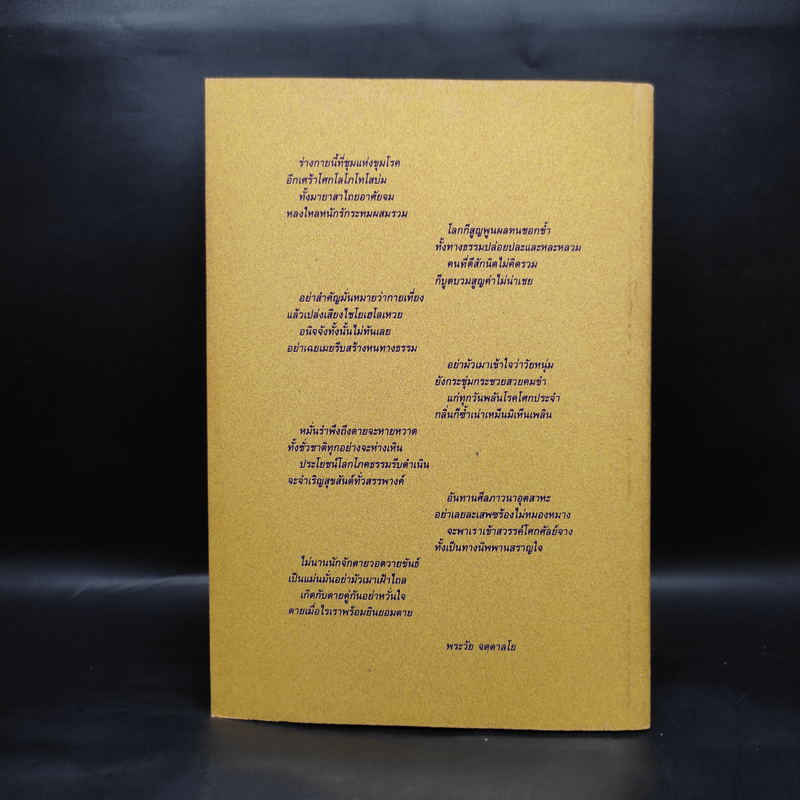 ร่างกายนี้ที่ชุมแห่งขุมโรค
อีกเศร้าโศกโลโภโทโสบ่ม
ทั้งมายาสาไถยอาศัยจม
หลงใหลหนักรักระทมผสมรวม
โลกก็สูญพูนผลทนชอกช้ำ
ทั้งทางธรรมปล่อยปละและหละหลวม
คนที่ดีสักนิดไม่คิดรวม
ก็บูดบวมสูญค่าไม่น่าเชย
อย่าสำคัญมั่นหมายว่ากายเที่ยง
แล้วเปล่งเสียงไชโยเฮโลเหวย
อนิจจังทั้งนั้นไม่ทันเลย
อย่าเฉยเมยรีบสร้างหนทางธรรม
อย่ามัวเมาเข้าใจว่าวัยหนุ่ม
ยังกระชุ่มกระชวยสวยคมขำ
แก่ทุกวันพลันโรคโศกประจำ
กลิ่นก็ซ้ำเน่าเหม็นมิเห็นเพลิน
หมั่นรำพึงถึงตายจะหายหวาด
ทั้งชั่วชาติทุกอย่างจะห่างเหิน
ประโยชน์โลกโภคธรรมรีบดำเนิน
จะจำเริญสุขสันต์ทั่วสรรพางค์
อันทานศีลภาวนาอุตสาหะ
อย่าเลยละเสพซร้องไม่หมองหมาง
จะพาเราเข้าสวรรค์โศกศัลย์จาง
ทั้งเป็นทางนิพพานสราญใจ
ไม่นานนักจักตายวอดวายขันธ์
เป็นแม่นมั่นอย่ามัวเมาเฝ้าไถล
เกิดกับตายคู่กันอย่าหวั่นใจ
ตายเมื่อไรเราพร้อมยินยอมตาย
พระวัย จตตาลโย